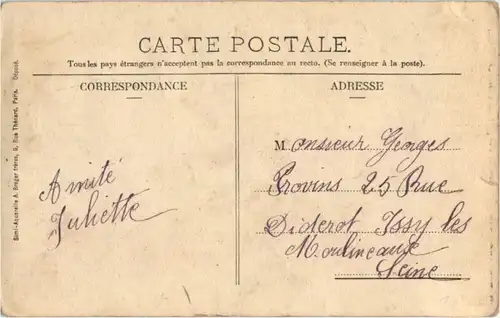 CARTE POSTALE.
Tous les pays étrangers n'acceptent pas la correspondance au recto. (Se renseigner à la poste).
CORRESPONDANCE
ADRESSE
Amitié
Juliette
Monsieur Georges
Provins 25 Rue
Diderot Issy les
Moulineaux
Seine
Semi-Aquarelle A. Breger frères, 9, Rue Thénard, Paris. Déposé.